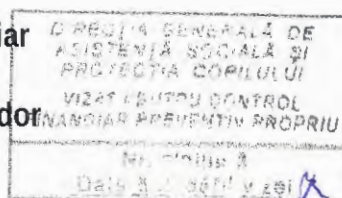 iar
DIRECȚIA GENERALĂ DE
ASISTENȚĂ SOCIALĂ ȘI
PROTECȚIA COPILULUI
VIZAT PENTRU CONTROL
dor
FINANCIAR PREVENTIV PROPRIU